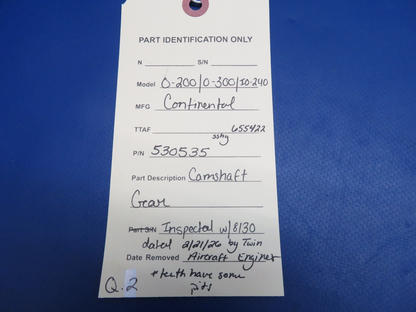 PART IDENTIFICATION ONLY
N S/N
Model O-200/O-300/IO-240
MFG Continental
TTAF 655422
P/N 530535
Part Description Camshaft
Gear
Part S/N Inspected w/8130
dated 2/21/26 by Twin
Date Removed Aircraft Engines
* teeth have some
pits
Q.2